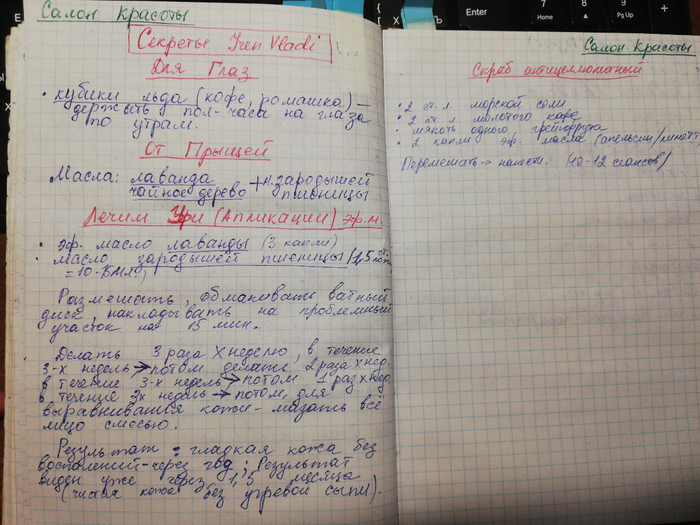 Салон красоты
Секреты Iren Vladi
Для Глаз
• кубики льда (кофе, ромашка) –
держать пол-часа на глаза
по утрам.
От Прыщей
Масла: лаванда + м. зародышей
чайное дерево пшеницы
Лечим Угри (Аппликации) эф. м.
• эф. масло лаванды (3 капли)
• масло зародышей пшеницы / 1,5 ст.
= 10
Размешать, обмакивать ватный
диск, накладывать на проблемный
участок на 15 мин.
Делать 3 раза X неделю, в течение
3-х недель → потом делать 2 раза X нед.
в течение 3-х недель → потом 1 раз X нед.
в течение 3х недель → потом, для
выравнивания кожи – мазать всё
лицо смесью.
Результат = гладкая кожа без
воспалений – через год; Результат
виден уже через 1,5 месяца
(чистая кожа без угревой сыпи).
Салон Красоты
Скраб антицеллюлитный
• 2 ст. л. морской соли
• 2 ст. л. молотого кофе
• мякоть одного грейпфрута
• 2 капли эф. масла (апельсин/
Перемешать → нанести. (10-12 сеансов)
Enter
7
Home
8
9
Pg Up